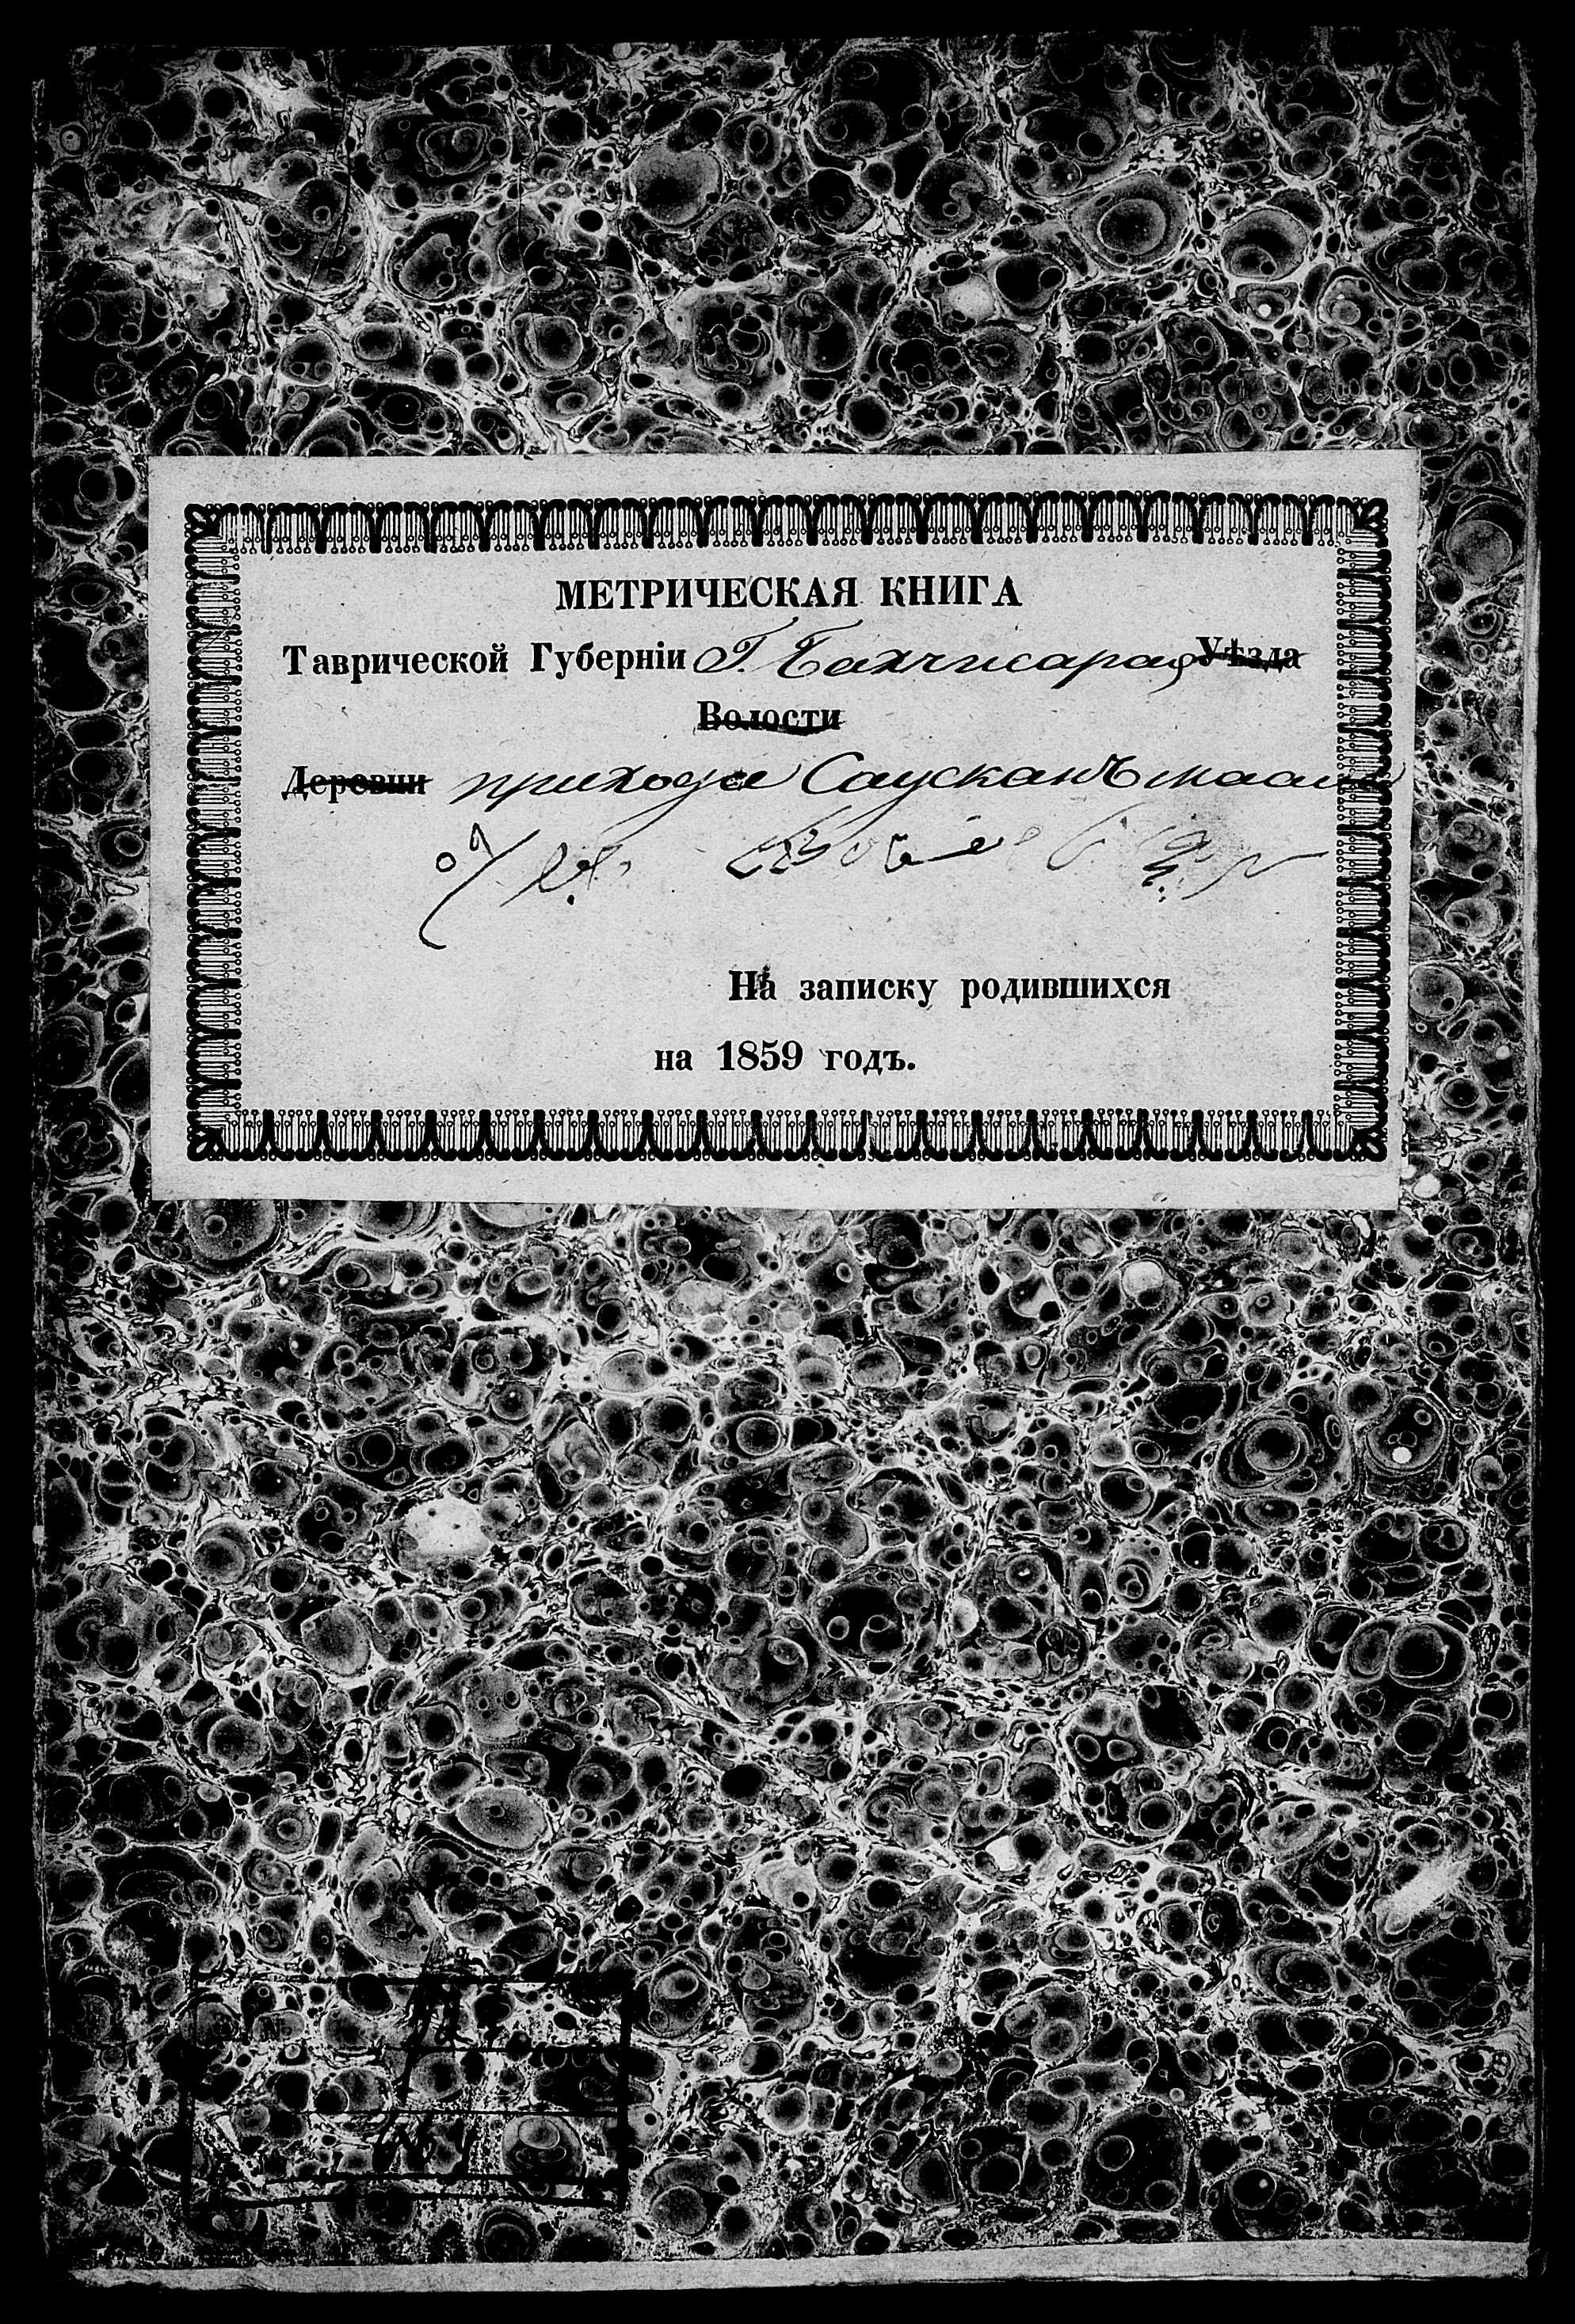 МЕТРИЧЕСКАЯ КНИГА
Таврической Губерніи Г. Бахчисарая Уѣзда
Волости
Деревни прихода Саусканъ маале
На записку родившихся
на 1859 годъ.